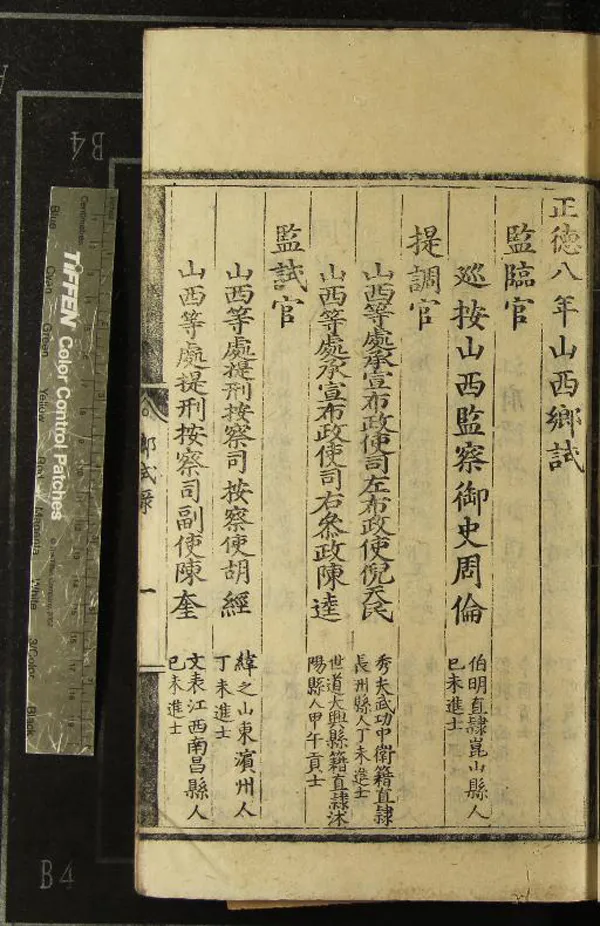 正德八年山西鄉試
監臨官
巡按山西監察御史周倫
伯明直隸崑山縣人
己未進士
提調官
山西等處承宣布政使司左布政使倪天民
秀夫武功中衛籍直隸
長州縣人丁未進士
山西等處承宣布政使司右叅政陳逵
世道大興縣籍直隸沭
陽縣人甲午貢士
監試官
山西等處提刑按察司按察使胡經
緯之山東濱州人
丁未進士
山西等處提刑按察司副使陳奎
文表江西南昌縣人
己未進士
鄉試录
一
B4
B4
TIFFEN Color Control Patches
Centimetres
Blue
Cyan
Green
Yellow
Red
Magenta
White
3/Color
Black